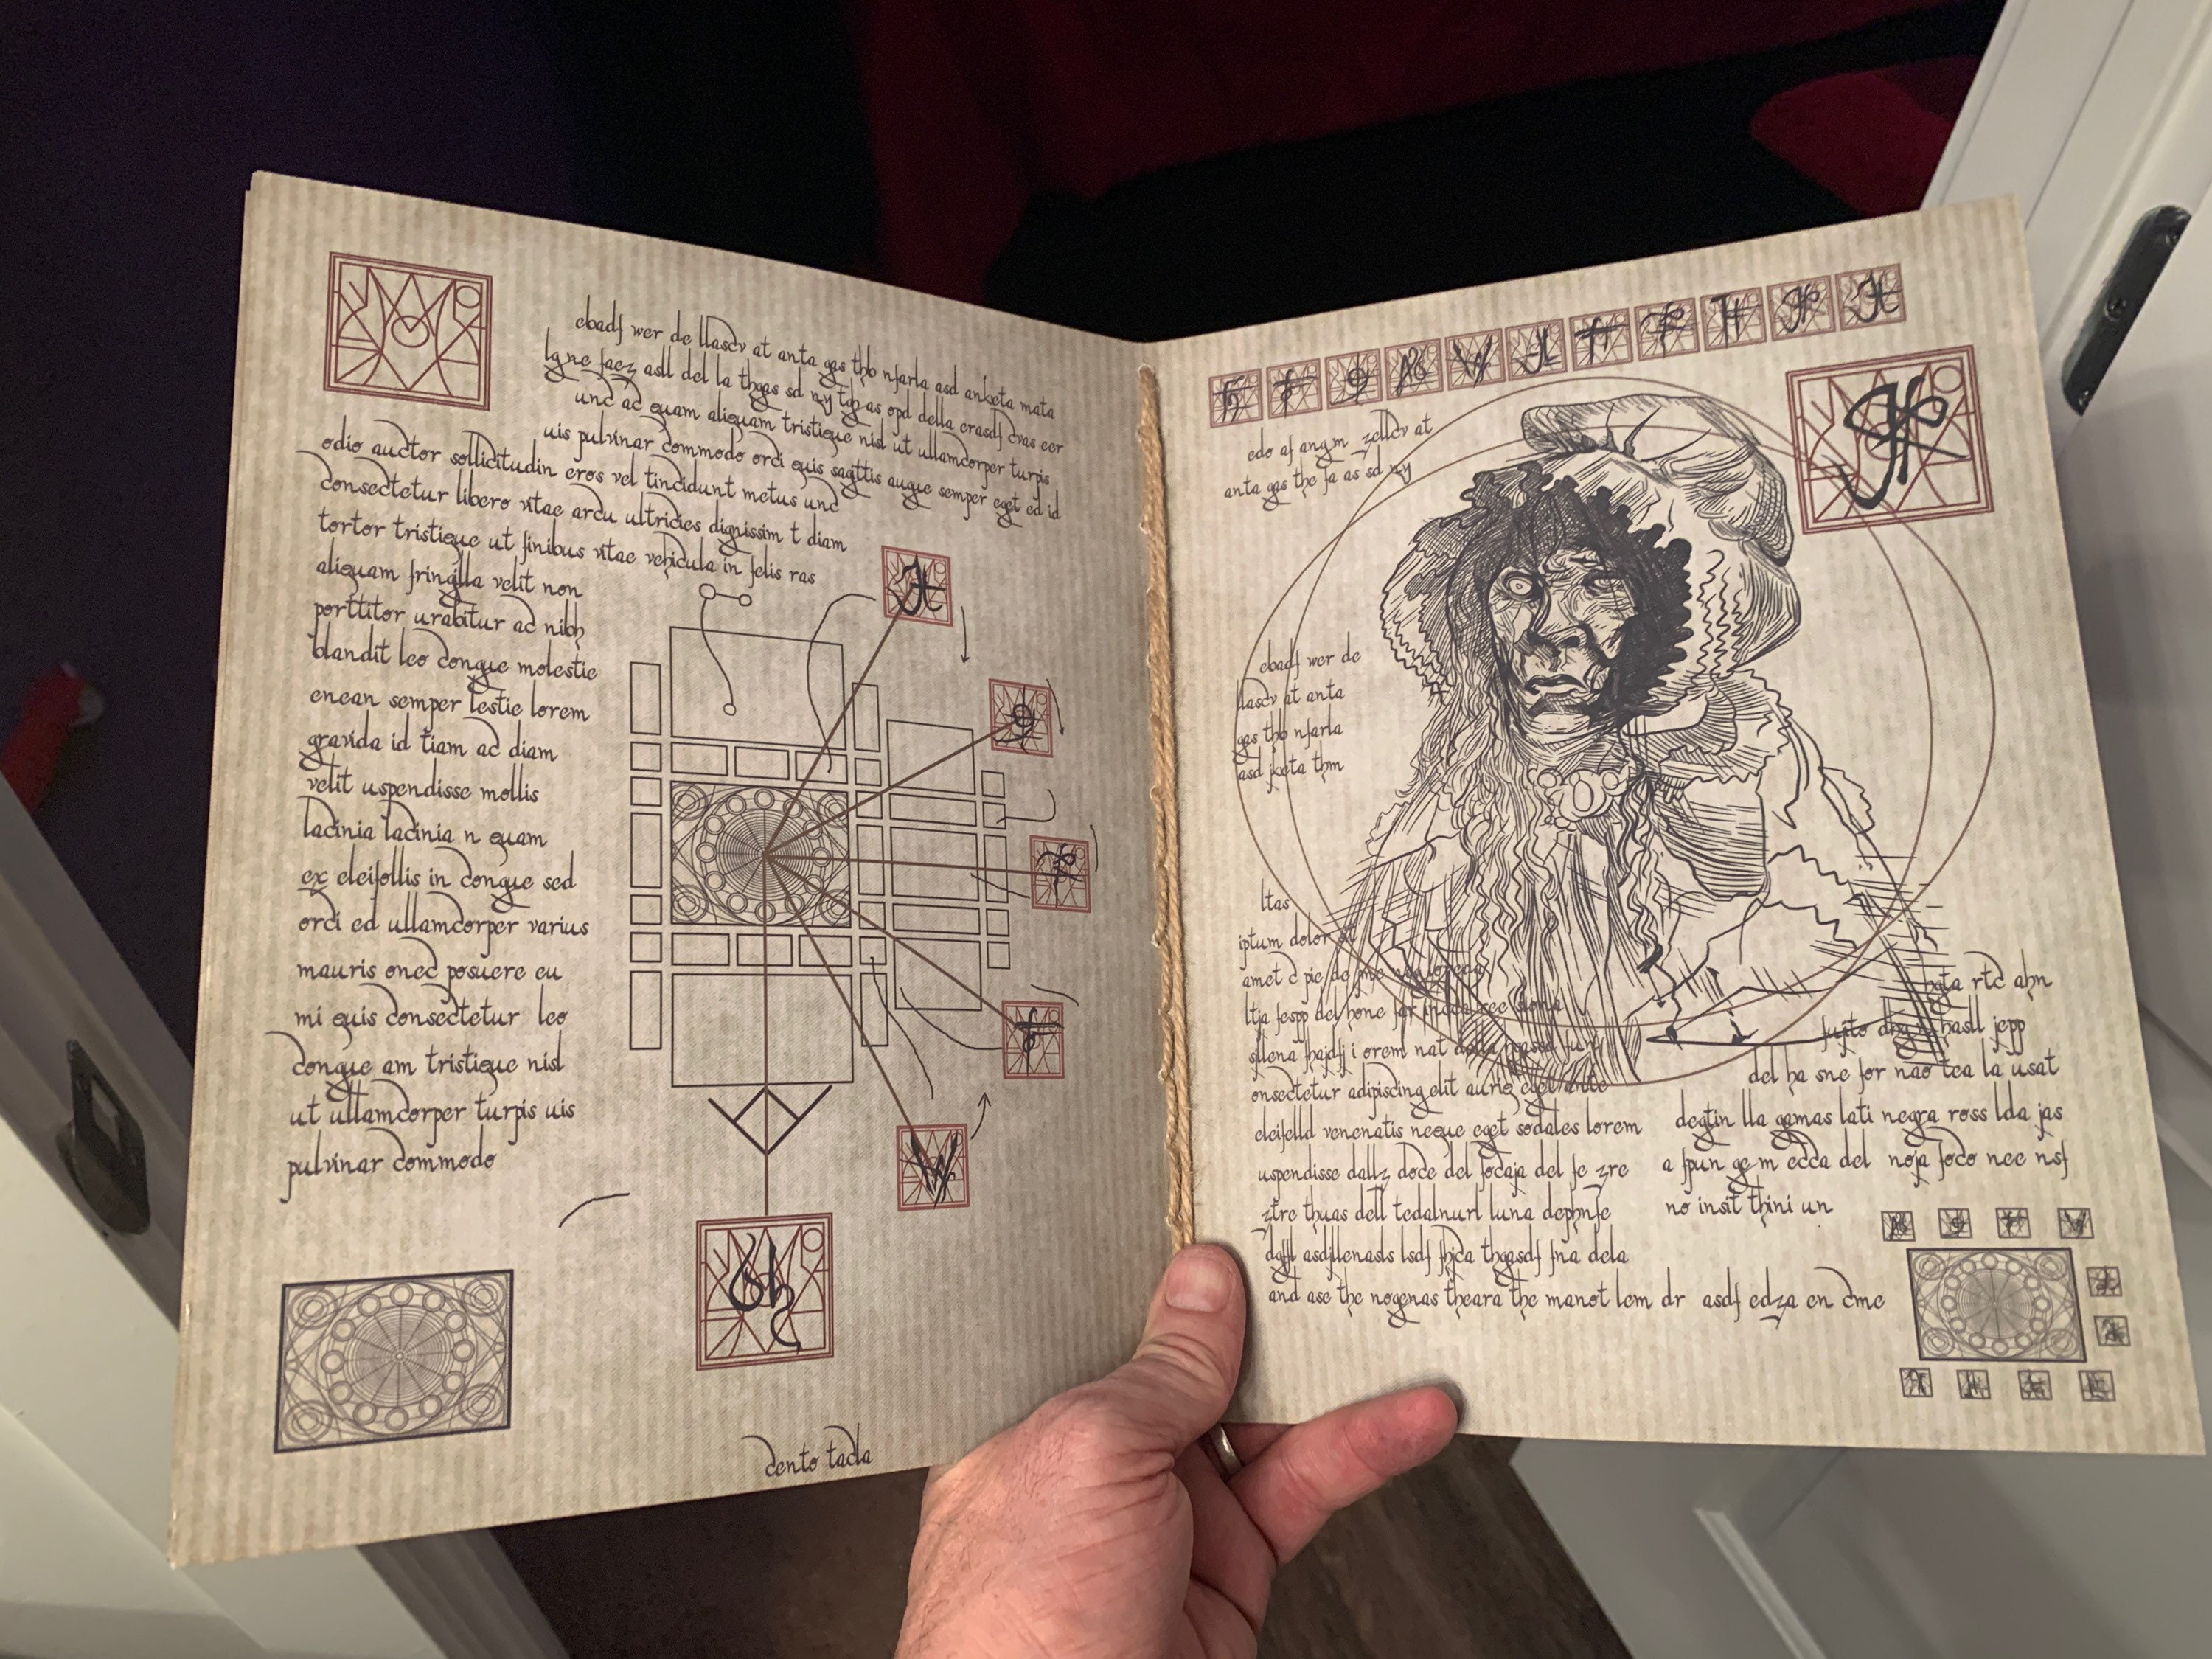 ebadf wer de llascv at anta gas tho nfarla asd anketa mata
lg ne faez asll del la thgas sd ny tgh as opd della erasdf cvas eer
unc ac quam aliquam tristique nisl ut ullamcorper turpis
uis pulvinar commodo orci quis sagittis augue semper eget ed id
odio auctor sollicitudin eros vel tincidunt metus unc
consectetur libero vitae arcu ultricies dignissim t diam
tortor tristique ut finibus vitae vehicula in felis ras
aliquam fringilla velit non
porttitor urabitur ac nibh
blandit leo congue molestie
enean semper lestie lorem
gravida id tiam ac diam
velit uspendisse mollis
lacinia lacinia n quam
ex eleifollis in congue sed
orci ed ullamcorper varius
mauris onec posuere eu
mi quis consectetur leo
congue am tristique nisl
ut ullamcorper turpis uis
pulvinar commodo
cento tacla
edo af angm zellcv at
anta gas the fa as sd ny
ebadf wer de
llascv at anta
gas tho nfarla
asd keta thm
ltas
iptum dolor
amet c pie de me
ltja fespp del hone far
sflena hajdfj i orem nat
onsectetur adipiscing elit auris eget ante
eleifelld venenatis neque eget sodales lorem
uspendisse dallz doce del focaja del fe zre
ztre thuas dell tedalnurl luna dephnfe
dgffl asdjllenasls lsdf fhca thgasdf fna dela
and ase the nogenas theara the manot lem dr asdf edza en cme
rtc ahn
hasll jepp
del ha sne for nao tea la usat
degtin lla gamas lati negra ross lda jas
a fpun ge m ecca del noja foco nee nsf
no insit thini un